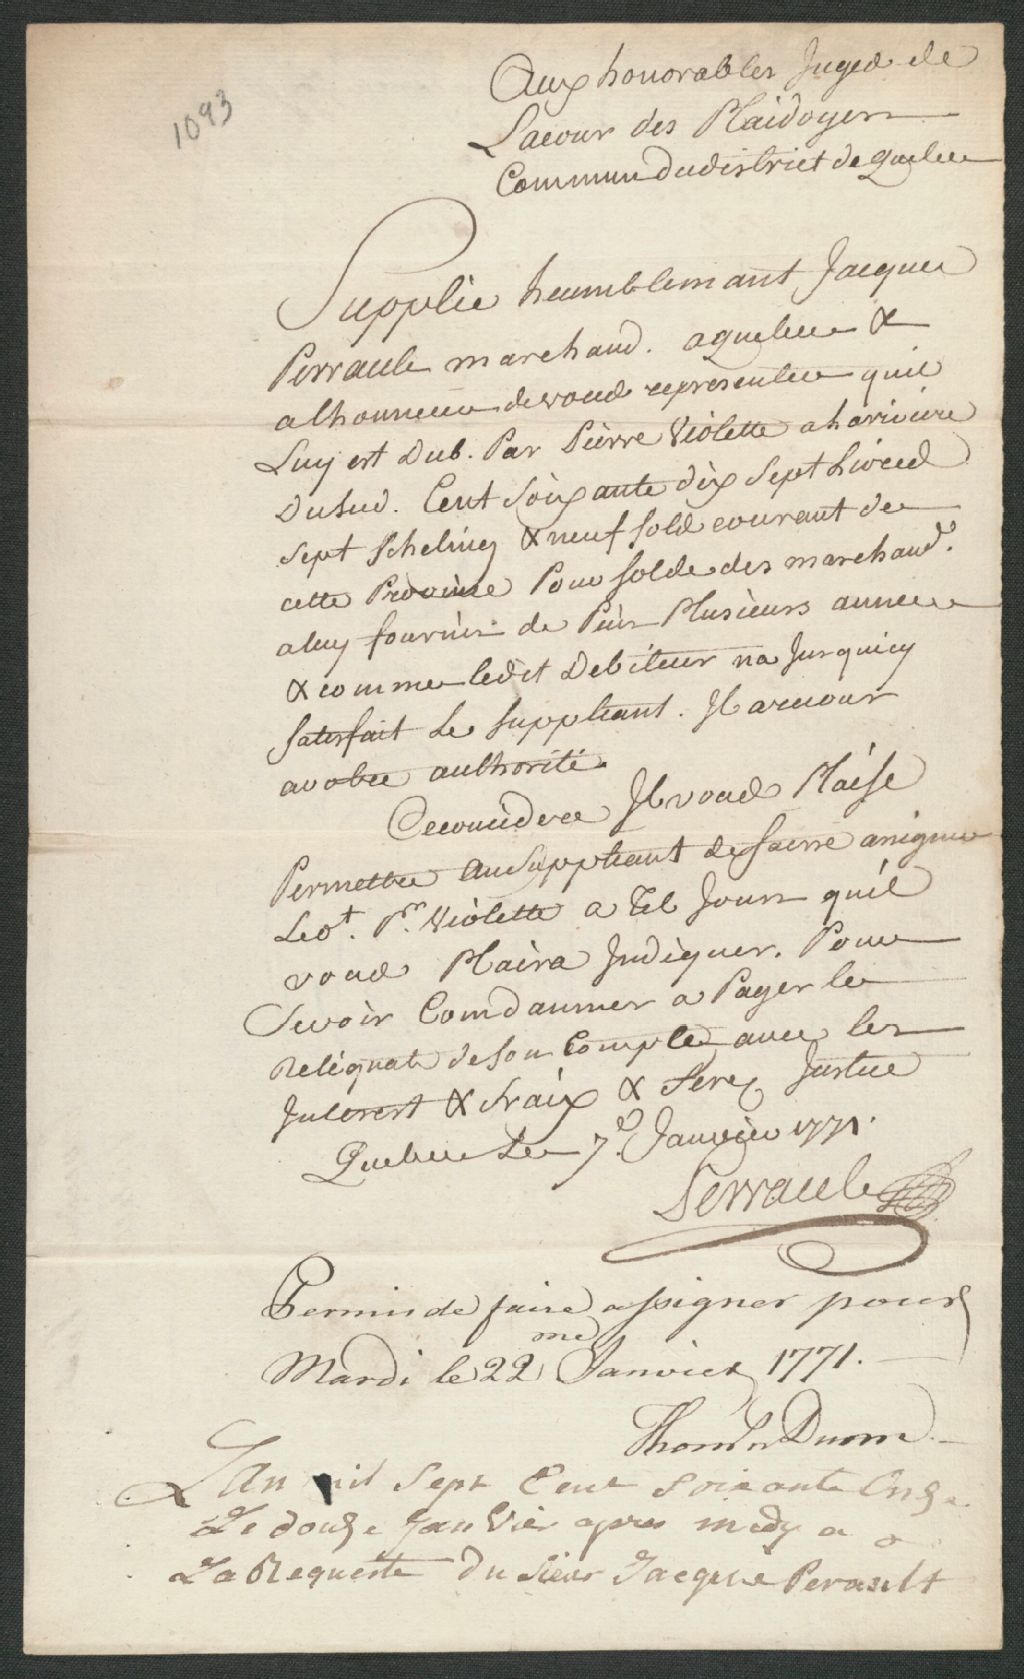 1093
Aux honorables Juges de
Lacour des Plaidoyers
Commun Dudistrict de Quebec
Supplie humblemant Jacques
Perrault marchand. aquebec &
alhonneur devous representer quil
Luy est Dub. Par Pièrre Violette alarivière
Dusud. Cent Soixante dix Sept Livres
Sept Scheling & neuf sold courant de
cette Province Pour solde des marchand.es
aluy fournis de Puis Plusieurs années
& comme ledit Debiteur na Jusquicy
Satisfait Le Suppliant. Il arecour
avotre authorité.
Ceconsideré Il vous Plaise
Permettre au Suppliant de faire assigner
Led.t P.re Violette a tel Jours quil
vous Plaira Indiquer. Pour
Sevoir Comdanner a Payer le
Reliquat deson Compte avec les
Interest & fraix & Serez Justice
Quebec Le 7.e Janvier 1771.
Perrault
Permis de faire assigner pour
Mardi le 22.me Janvier 1771.
Thom.s Dunn
L'an mil Sept Cent Soixante Onze
Le douze Janvier apres midy a
La Requeste Du Sieur Jacque Perault